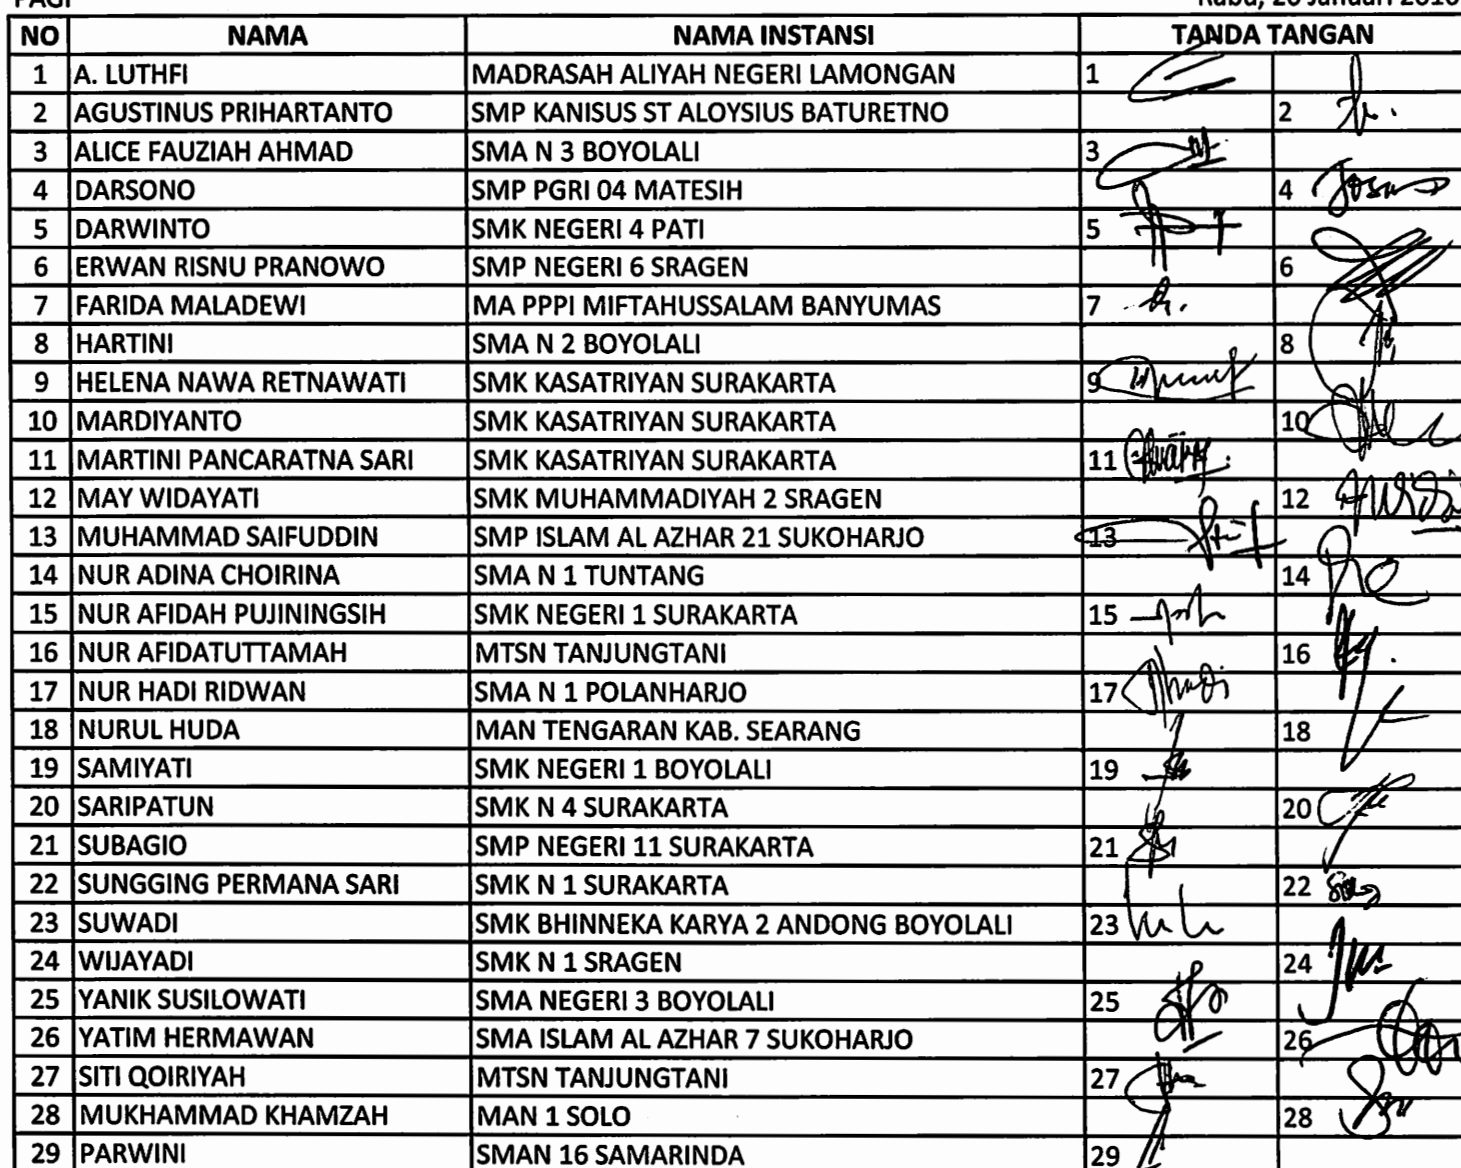 PAGI Rabu, 20 Januari 2016
NO NAMA NAMA INSTANSI TANDA TANGAN
1 A. LUTHFI MADRASAH ALIYAH NEGERI LAMONGAN 1
2 AGUSTINUS PRIHARTANTO SMP KANISUS ST ALOYSIUS BATURETNO 2
3 ALICE FAUZIAH AHMAD SMA N 3 BOYOLALI 3
4 DARSONO SMP PGRI 04 MATESIH 4
5 DARWINTO SMK NEGERI 4 PATI 5
6 ERWAN RISNU PRANOWO SMP NEGERI 6 SRAGEN 6
7 FARIDA MALADEWI MA PPPI MIFTAHUSSALAM BANYUMAS 7
8 HARTINI SMA N 2 BOYOLALI 8
9 HELENA NAWA RETNAWATI SMK KASATRIYAN SURAKARTA 9
10 MARDIYANTO SMK KASATRIYAN SURAKARTA 10
11 MARTINI PANCARATNA SARI SMK KASATRIYAN SURAKARTA 11
12 MAY WIDAYATI SMK MUHAMMADIYAH 2 SRAGEN 12
13 MUHAMMAD SAIFUDDIN SMP ISLAM AL AZHAR 21 SUKOHARJO 13
14 NUR ADINA CHOIRINA SMA N 1 TUNTANG 14
15 NUR AFIDAH PUJININGSIH SMK NEGERI 1 SURAKARTA 15
16 NUR AFIDATUTTAMAH MTSN TANJUNGTANI 16
17 NUR HADI RIDWAN SMA N 1 POLANHARJO 17
18 NURUL HUDA MAN TENGARAN KAB. SEARANG 18
19 SAMIYATI SMK NEGERI 1 BOYOLALI 19
20 SARIPATUN SMK N 4 SURAKARTA 20
21 SUBAGIO SMP NEGERI 11 SURAKARTA 21
22 SUNGGING PERMANA SARI SMK N 1 SURAKARTA 22
23 SUWADI SMK BHINNEKA KARYA 2 ANDONG BOYOLALI 23
24 WIJAYADI SMK N 1 SRAGEN 24
25 YANIK SUSILOWATI SMA NEGERI 3 BOYOLALI 25
26 YATIM HERMAWAN SMA ISLAM AL AZHAR 7 SUKOHARJO 26
27 SITI QOIRIYAH MTSN TANJUNGTANI 27
28 MUKHAMMAD KHAMZAH MAN 1 SOLO 28
29 PARWINI SMAN 16 SAMARINDA 29